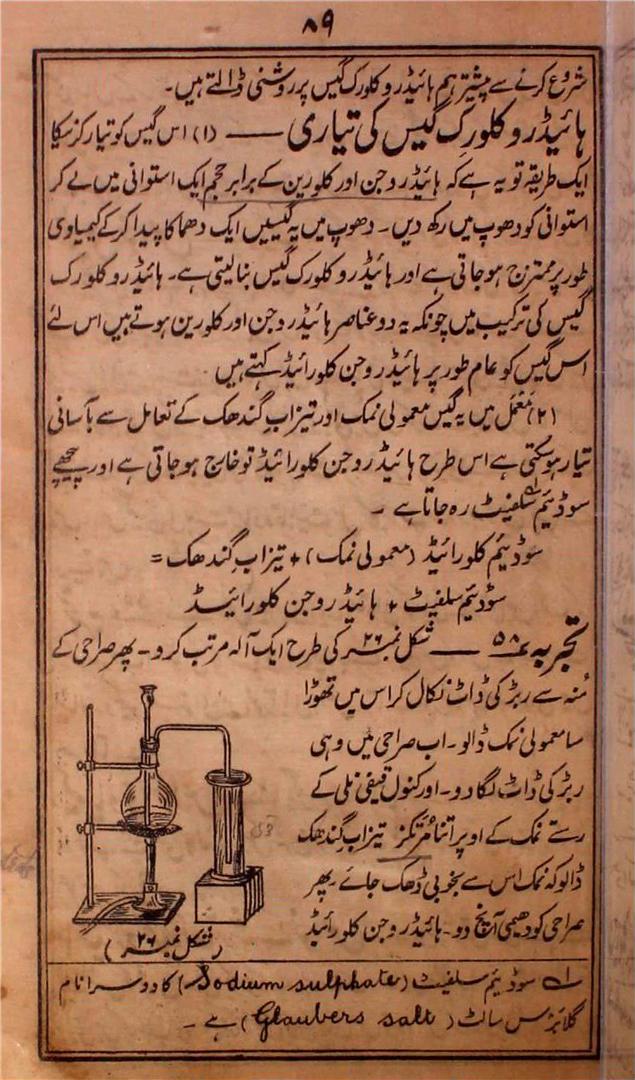 ۸۹
شروع کرنے سے پیشتر ہم ہائیڈروکلورک گیس پر روشنی ڈالتے ہیں۔
ہائیڈروکلورک گیس کی تیاری — (۱) اس گیس کو تیار کرنیکا
ایک طریقہ تو یہ ہے کہ ہائیڈروجن اور کلورین کے برابر حجم ایک استوانی میں لے کر
استوانی کو دھوپ میں رکھ دیں۔ دھوپ میں یہ گیسیں ایک دھماکا پیدا کر کے کیمیاوی
طور پر ممتزج ہو جاتی ہے اور ہائیڈروکلورک گیس بنا لیتی ہے۔ ہائیڈروکلورک
گیس کی ترکیب میں چونکہ یہ دو عناصر ہائیڈروجن اور کلورین ہوتے ہیں اس لئے
اس گیس کو عام طور پر ہائیڈروجن کلورائیڈ کہتے ہیں
(۲) معمل میں یہ گیس معمولی نمک اور تیزاب گندھک کے تعامل سے بآسانی
تیار ہو سکتی ہے اس طرح ہائیڈروجن کلورائیڈ تو خارج ہو جاتی ہے اور پیچھے
سوڈیئم سلفیٹ۱ رہ جاتا ہے۔
سوڈیئم کلورائیڈ (معمولی نمک) + تیزاب گندھک =
سوڈیئم سلفیٹ + ہائیڈروجن کلورائیڈ
تجربہ ۵۸ — شکل نمبر ۲۶ کی طرح ایک آلہ مرتب کرو۔ پھر صراحی کے
مُنہ سے ربڑ کی ڈاٹ نکال کر اس میں تھوڑا
سا معمولی نمک ڈالو۔ اب صراحی میں وہی
ربڑ کی ڈاٹ لگا دو۔ اور کنول قیفی نلی کے
رستے نمک کے اوپر اتنا مُرتکز تیزاب گندھک
ڈالو کہ نمک اس سے بخوبی ڈھک جائے۔ پھر
صراحی کو دھیمی آنچ دو۔ ہائیڈروجن کلورائیڈ
(شکل نمبر ۲۶)
۱ سوڈیئم سلفیٹ (Sodium sulphate) کا دوسرا نام
گلابرس سالٹ (Glaubers salt) ہے۔